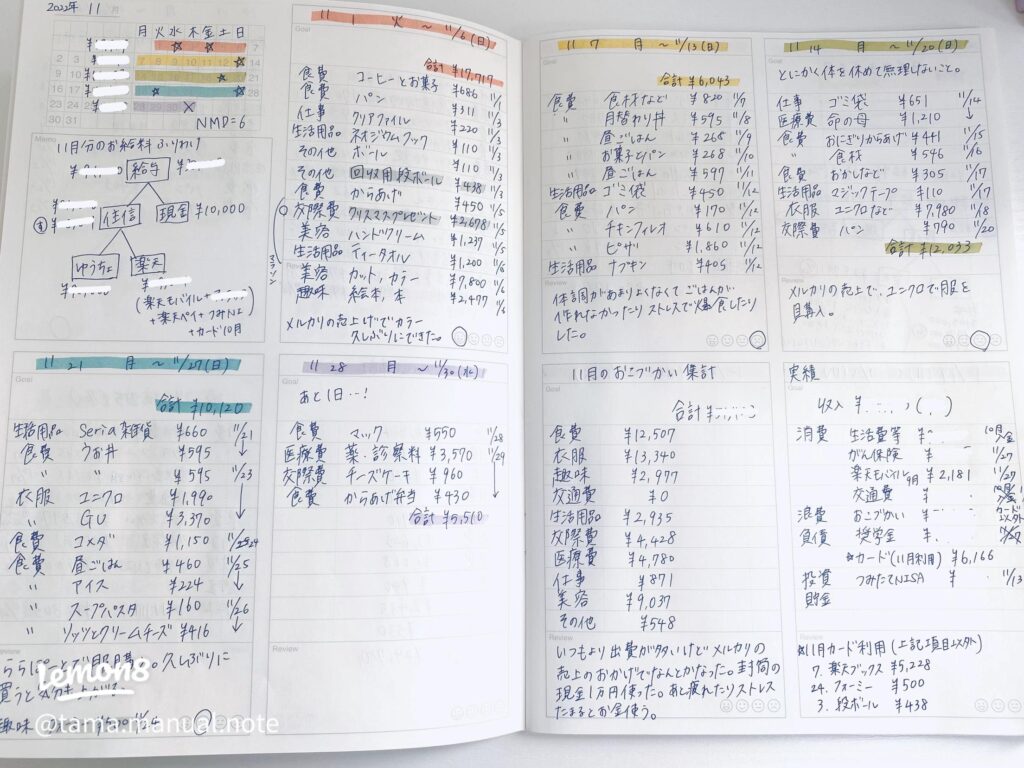 2022年 11
月 火 水 木 金 土 日
NMD=6
Memo
11月分のお給料ふりわけ
給与
住信
現金 ¥10,000
ゆうちょ
楽天
(楽天モバイル+
+楽天ペイ+つみNI
+カード10月
11 1 火 ~ 11/6(日)
Goal
合計 ¥17,717
食費 コーヒーとお菓子 ¥686 11/1
食費 パン ¥311 11/3
仕事 クリアファイル ¥220 11/3
生活用品 ネオジウムフック ¥110 11/3
その他 ボール ¥110 11/3
その他 回収用段ボール ¥438 11/3
食費 からあげ ¥450 11/5
交際費 クリスマスプレゼント ¥2,678 11/5
美容 ハンドクリーム ¥1,237 11/5
生活用品 ティータオル ¥1,200 11/6
美容 カット,カラー ¥7,800 11/6
趣味 絵本,本 ¥2,477 11/6
メルカリの売上げでカラー
久しぶりにできた。
11 7 月 ~ 11/13(日)
Goal
合計 ¥6,043
食費 食材など ¥820 11/7
〃 月替わり丼 ¥595 11/8
〃 昼ごはん ¥268 11/9
〃 お菓子とパン ¥268 11/10
〃 昼ごはん ¥597 11/11
生活用品 ゴミ袋 ¥450 11/12
食費 パン ¥170 11/12
〃 チキンフィレオ ¥610 11/12
〃 ピザ ¥1,860 11/12
生活用品 ナプキン ¥405 11/12
Review
体調があまりよくなくてごはんが
作れなかったりストレスで爆食したり
した。
11 14 月 ~ 11/20(日)
Goal
とにかく体を休めて無理しないこと。
仕事 ゴミ袋 ¥651 11/14
医療費 命の母 ¥1,210
食費 おにぎりからあげ ¥441 11/15
〃 食材 ¥546 11/16
食費 おかしなど ¥305 11/17
生活用品 マジックテープ ¥110 11/17
衣服 ユニクロなど ¥7,980 11/18
交際費 パン ¥790 11/20
合計 ¥12,033
Review
メルカリの売上で、ユニクロで服を
購入。
11 21 月 ~ 11/27(日)
Goal
合計 ¥10,120
生活用品 Seria雑貨 ¥660 11/21
食費 うお丼 ¥595
〃 〃 ¥595 11/23
衣服 ユニクロ ¥1,990
〃 GU ¥3,370
食費 コメダ ¥1,150
食費 昼ごはん ¥460 11/25
〃 アイス ¥224
〃 スープパスタ ¥160 11/26
〃 リッツとクリームチーズ ¥416
久しぶりに
買うと気分も上がる。
趣味
lemon8
@tama.manual.note
11 28 月 ~ 11/30(水)
Goal
あと1日…!
食費 マック ¥550 11/28
医療費 薬、診察料 ¥3,570 11/29
交際費 チーズケーキ ¥960
食費 からあげ弁当 ¥430
合計 ¥5,510
Review
11月のおこづかい集計
Goal
合計 ¥
食費 ¥12,507
衣服 ¥13,340
趣味 ¥2,977
交通費 ¥0
生活用品 ¥2,935
交際費 ¥4,428
医療費 ¥4,780
仕事 ¥871
美容 ¥9,037
その他 ¥548
Review
いつもより出費が多いけどメルカリの
売上のおかげでなんとかなった。封筒の
現金1万円使った。あと疲れたりストレス
たまるとお金使う。
実績
Goal
収入 ¥
消費 生活費等 ¥
がん保険 ¥ 11/27
楽天モバイル9月 ¥2,181 11/27
交通費 ¥
浪費 おこづかい ¥
負債 奨学金 ¥
*カード(11月利用) ¥6,166
投資 つみたてNISA ¥ 11/13
貯金
*11月カード利用(上記項目以外)
7. 楽天ブックス ¥5,228
24. フォーミー ¥500
3. 段ボール ¥438